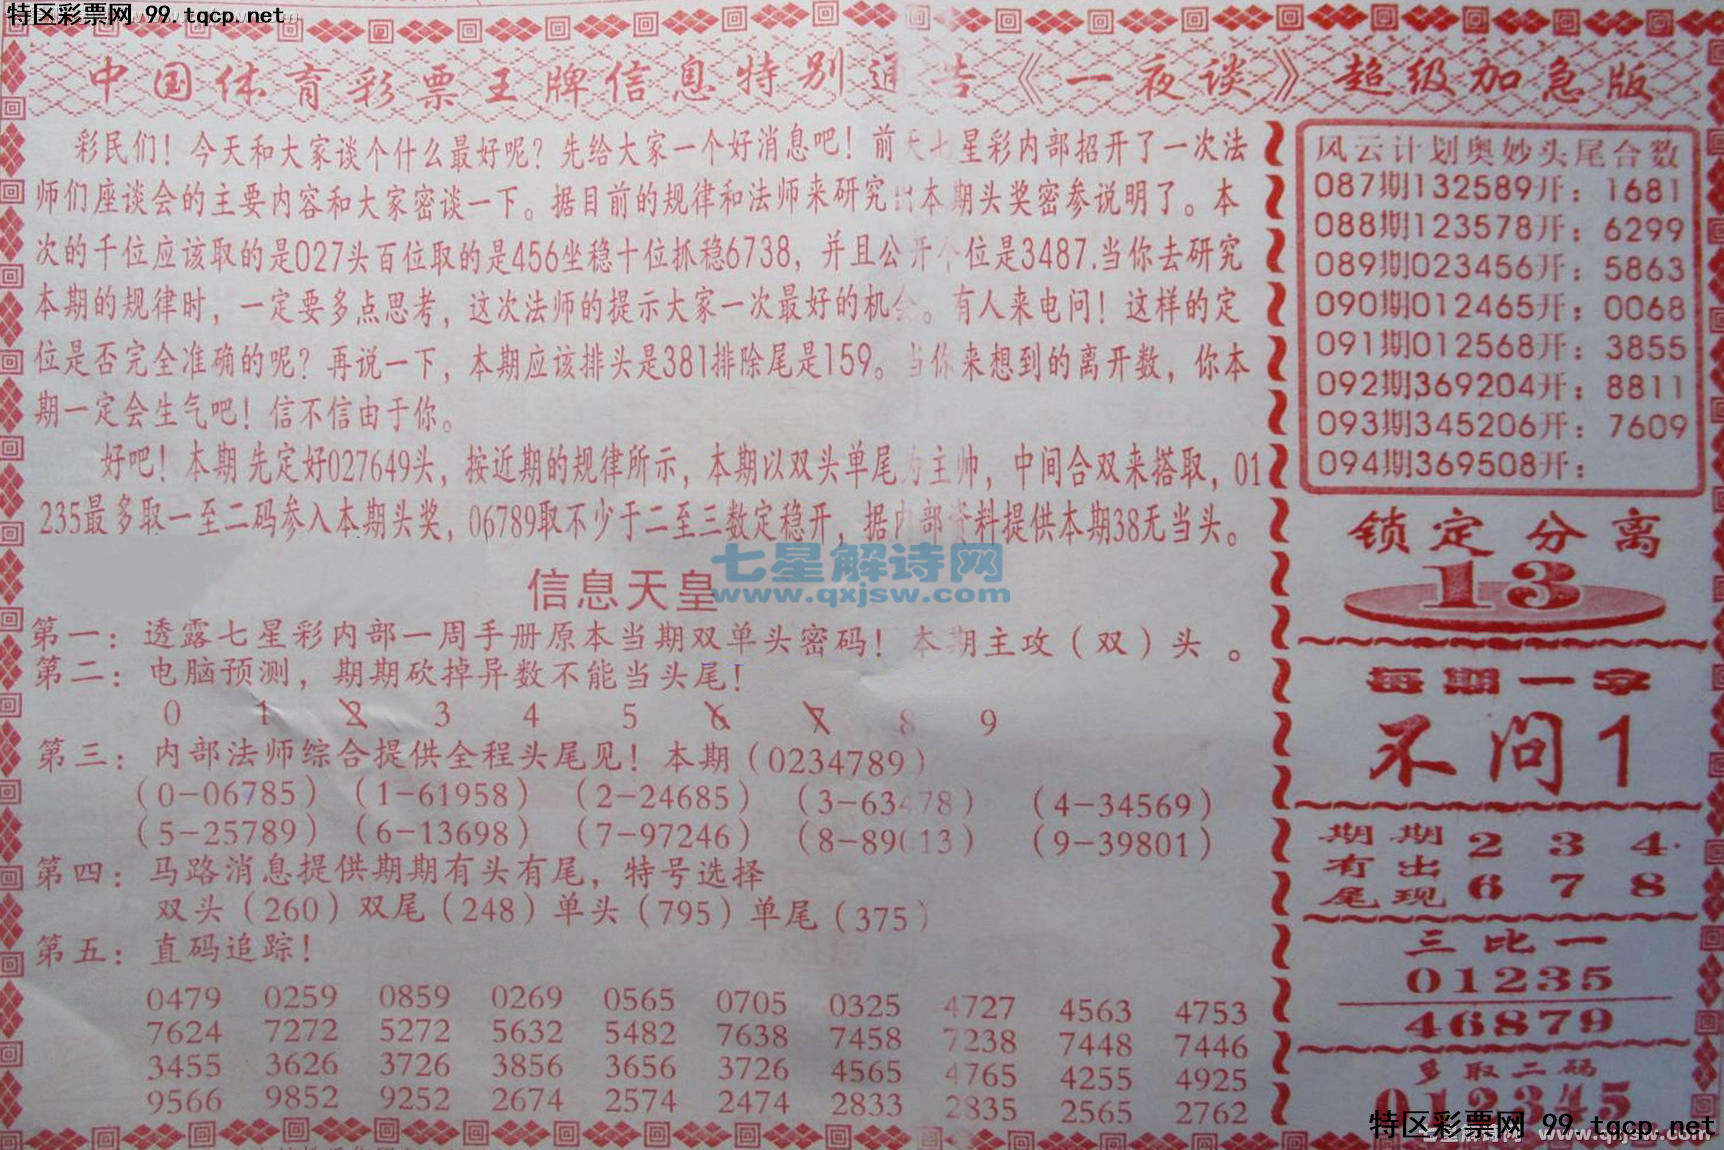 特区彩票网 99.tqcp.net
中国体育彩票王牌信息特别通告《一夜谈》超级加急版
彩民们！今天和大家谈个什么最好呢？先给大家一个好消息吧！前天七星彩内部招开了一次法
师们座谈会的主要内容和大家密谈一下。据目前的规律和法师来研究出本期头奖密参说明了。本
次的千位应该取的是027头百位取的是456坐稳十位抓稳6738，并且公开个位是3487.当你去研究
本期的规律时，一定要多点思考，这次法师的提示大家一次最好的机会。有人来电问！这样的定
位是否完全准确的呢？再说一下，本期应该排头是381排除尾是159。当你来想到的离开数，你本
期一定会生气吧！信不信由于你。
好吧！本期先定好027649头，按近期的规律所示，本期以双头单尾为主帅，中间合双来搭取，01
235最多取一至二码参入本期头奖，06789取不少于二至三数定稳开，据内部资料提供本期38无当头。
七星解诗网
www.qxjsw.com
信息天皇
第一：透露七星彩内部一周手册原本当期双单头密码！本期主攻（双）头。
第二：电脑预测，期期砍掉异数不能当头尾！
0 1 2 3 4 5 6 7 8 9
第三：内部法师综合提供全程头尾见！本期（0234789）
（0-06785）（1-61958）（2-24685）（3-63478）（4-34569）
（5-25789）（6-13698）（7-97246）（8-89013）（9-39801）
第四：马路消息提供期期有头有尾，特号选择
双头（260）双尾（248）单头（795）单尾（375）
第五：直码追踪！
0479 0259 0859 0269 0565 0705 0325 4727 4563 4753
7624 7272 5272 5632 5482 7638 7458 7238 7448 7446
3455 3626 3726 3856 3656 3726 4565 4765 4255 4925
9566 9852 9252 2674 2574 2474 2833 2835 2565 2762
风云计划奥妙头尾合数
087期132589开：1681
088期123578开：6299
089期023456开：5863
090期012465开：0068
091期012568开：3855
092期369204开：8811
093期345206开：7609
094期369508开：
锁定分离
13
每期一字
不问1
期期 2 3 4
有出
尾现 6 7 8
三比一
01235
46879
多取二码
012345
特区彩票网 99.tqcp.net
七星解诗网 www.qxjsw.com